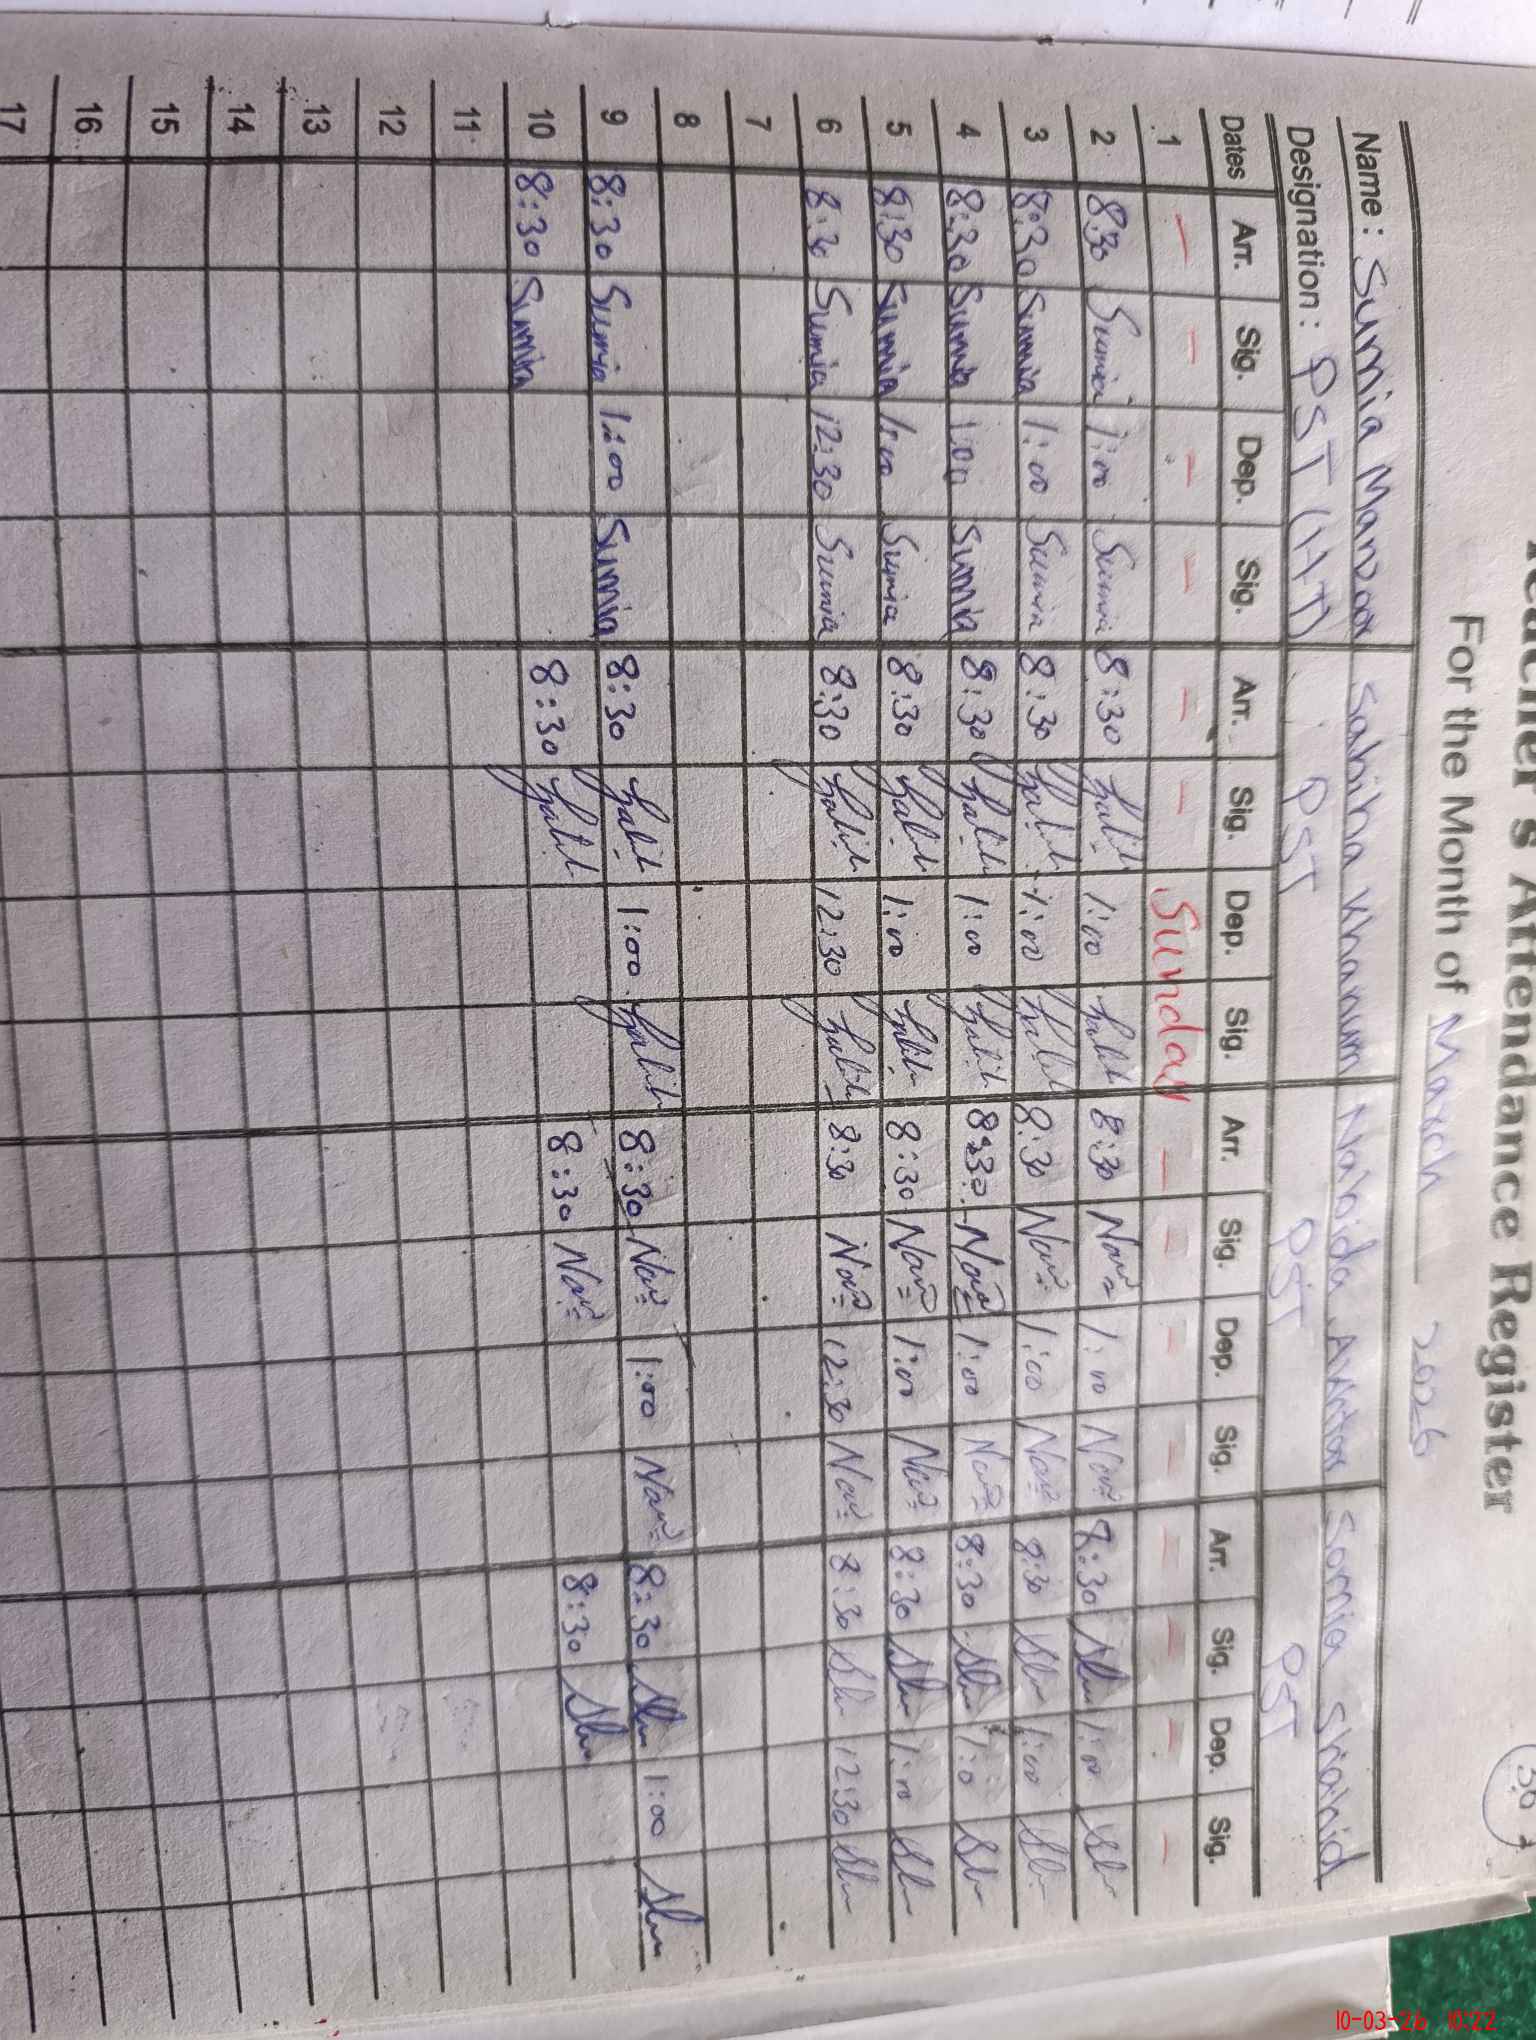 Teacher's Attendance Register
For the Month of March 2026
Name : Sumia Manzoor Sabiha Khanum Nahida Akhtar Somia Shahid
Designation : PST (HT) PST PST PST
Dates Arr. Sig. Dep. Sig. Arr. Sig. Dep. Sig. Arr. Sig. Dep. Sig. Arr. Sig. Dep. Sig.
1 - - - - - - Sunday - - - - - - - -
2 8:30 Sumia 1:00 Sumia 8:30 1:00 8:30 1:00 8:30 1:00
3 8:30 Sumia 1:00 Sumia 8:30 1:00 8:30 1:00 8:30 1:00
4 8:30 Sumia 1:00 Sumia 8:30 1:00 8:30 1:00 8:30 1:0
5 8:30 Sumia 1:00 Sumia 8:30 1:00 8:30 1:00 8:30 1:00
6 8:30 Sumia 12:30 Sumia 8:30 12:30 8:30 12:30 8:30 12:30
7
8
9 8:30 Sumia 1:00 Sumia 8:30 1:00 8:30 1:00 8:30 1:00
10 8:30 Sumia 8:30 8:30 8:30
11
12
13
14
15
16
17
10-03-26 10:22